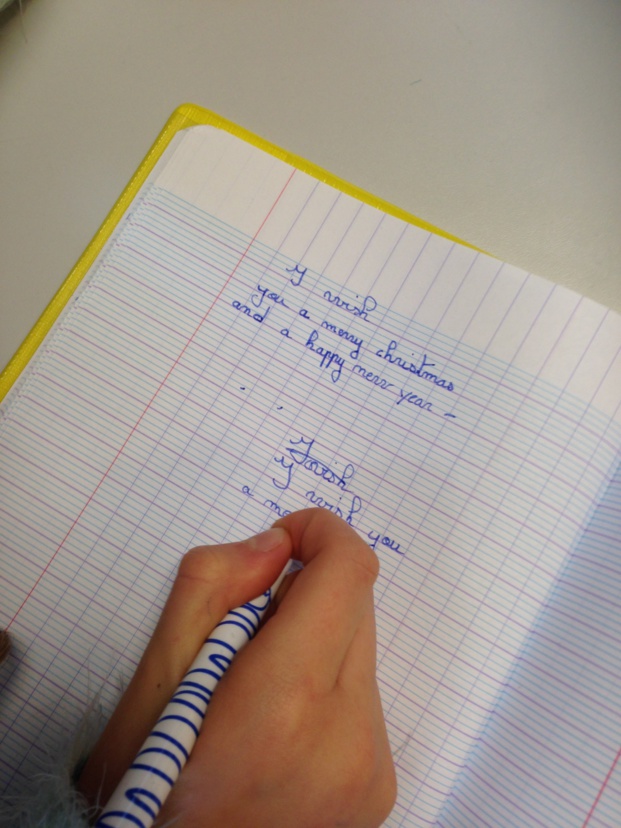 I wish
you a merry christmas
and a happy new year -
I wish
I wish you
a me